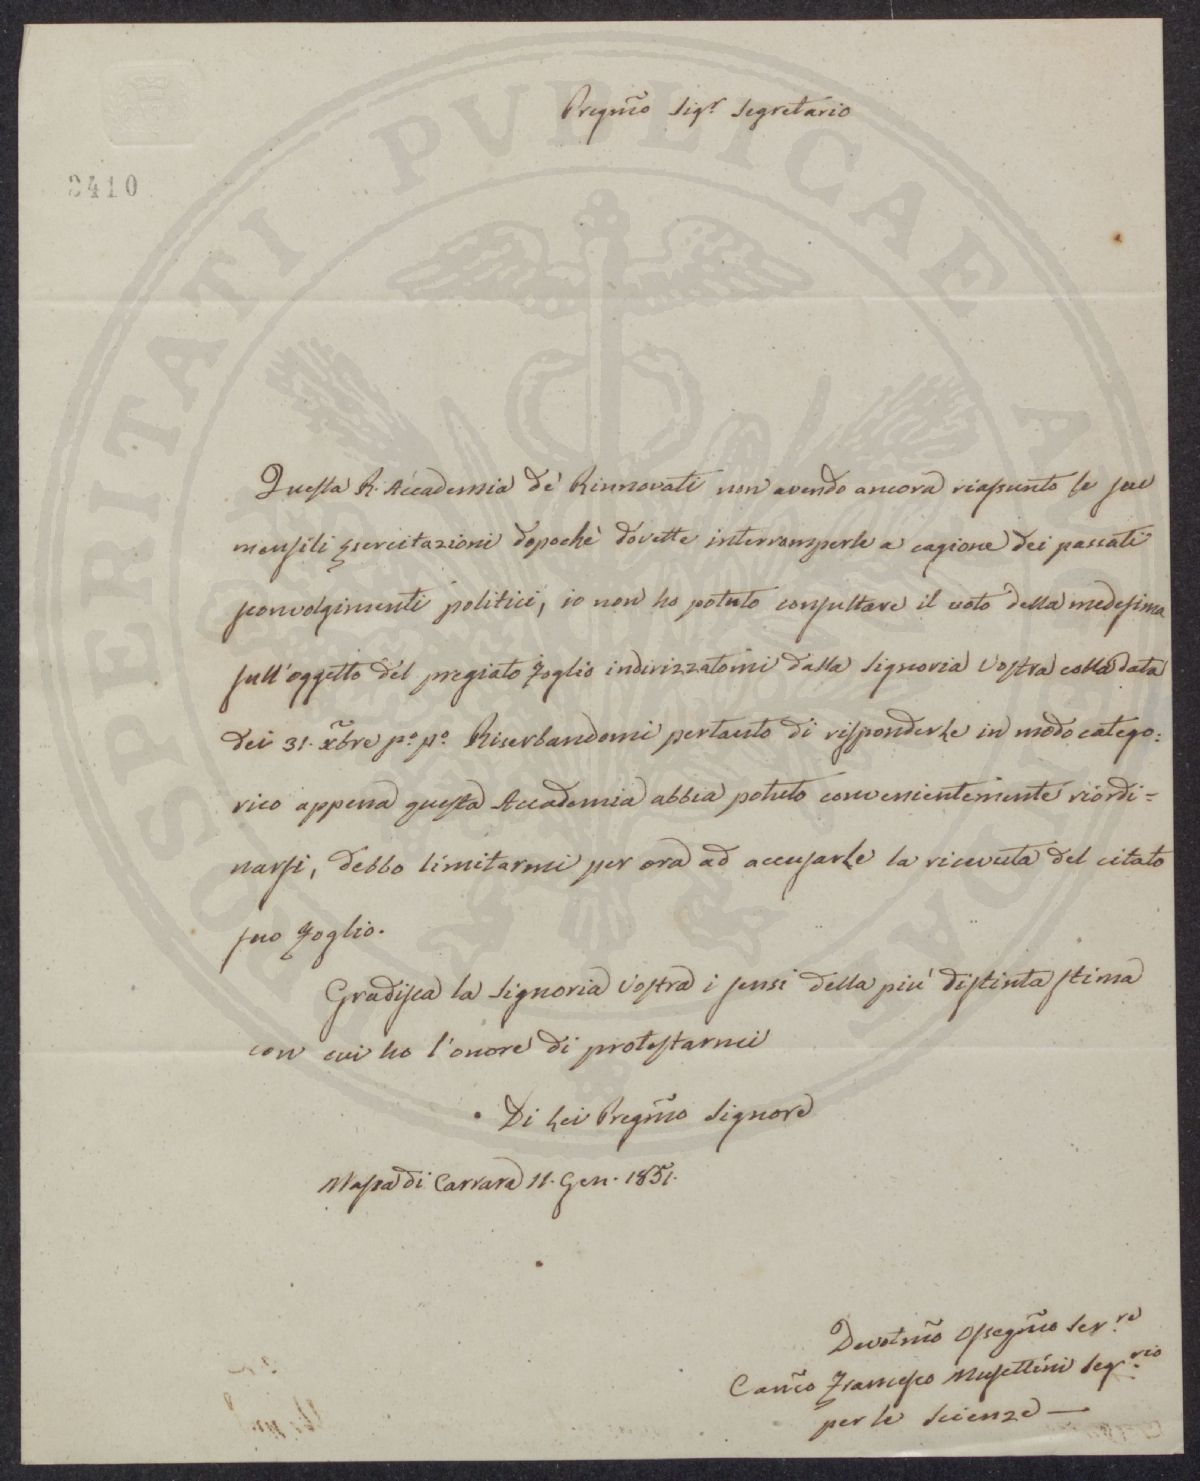 Pregm̃o Sigr Segretario
3410
Questa R. Accademia de' Rinnovati non avendo ancora riassunto le sue
mensili esercitazioni dopochè dovette interromperle a cagione dei passati
sconvolgimenti politici, io non ho potuto consultare il voto della medesima
sull'oggetto del pregiato foglio indirizzatomi dalla Signoria Vostra colla data
dei 31. Xbre p.o p.o Riserbandomi pertanto di risponderLe in modo catego:
rico appena questa Accademia abbia potuto convenientemente riordi=
narsi, debbo limitarmi per ora ad accusarLe la ricevuta del citato
suo foglio.
Gradisca la Signoria Vostra i sensi della più distinta stima
con cui ho l'onore di protestarmi
Di Lei Pregm̃o Signore
Massa di Carrara 11. Gen. 1851.
Devotm̃o Ossegm̃o Ser.re
Canco Francesco Musettini Segr.rio
per le Scienze —
PROSPERITATI PVBLICAE AVGENDAE